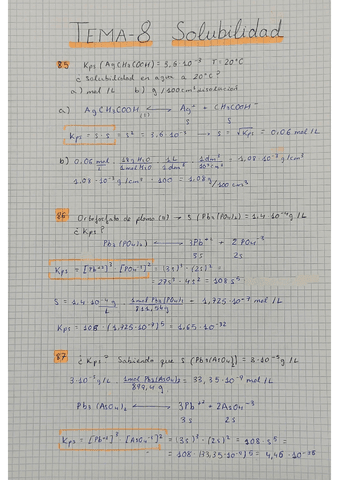 TEMA-8 Solubilidad
85 Kps (AgCH₃COOH) = 3,6·10⁻³ T = 20°C
¿Solubilidad en agua a 20°C?
a) mol/L b) g/100cm³ disolución
a) AgCH₃COOH ⟷ Ag⁺ + CH₃COOH⁻
(s) S S
Kps = S·S = S² = 3,6·10⁻³ → S = √Kps = 0,06 mol/L
b) 0,06 mol/L · 18g H₂O/1mol H₂O · 1L/1dm³ · 1dm³/10³cm³ = 1,08·10⁻³ g/cm³
1,08·10⁻³ g/cm³ · 100 = 1,08g/100 cm³
86 Ortofosfato de plomo (II) → S (Pb₃(PO₄)₂) = 1,4·10⁻⁴ g/L
¿Kps?
Pb₃(PO₄)₂ ⟷ 3Pb⁺² + 2PO₄⁻³
3s 2s
Kps = [Pb⁺²]³·[PO₄⁻³]² = (3s)³·(2s)² =
= 27s³·4s² = 108s⁵
S = 1,4·10⁻⁴ g/L · 1mol Pb₃(PO₄)₂/811,54g = 1,725·10⁻⁷ mol/L
Kps = 108·(1,725·10⁻⁷)⁵ = 1,65·10⁻³²
87 ¿Kps? Sabiendo que S (Pb₃(AsO₄)₂) = 3·10⁻⁵ g/L
3·10⁻⁵ g/L · 1mol Pb₃(AsO₄)₂/899,4g = 33,35·10⁻⁹ mol/L
Pb₃(AsO₄)₂ ⟷ 3Pb⁺² + 2AsO₄⁻³
3s 2s
Kps = [Pb⁺²]³·[AsO₄⁻³]² = (3s)³·(2s)² = 108·s⁵ =
= 108·(33,35·10⁻⁹)⁵ = 4,46·10⁻³⁶